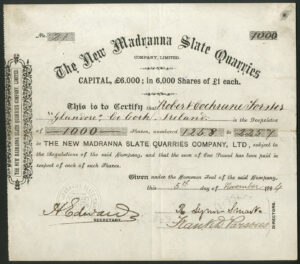 No. 21 1000
The New Madranna Slate Quarries
COMPANY, LIMITED.
CAPITAL, £6,000; in 6,000 Shares of £1 each.
This is to Certify that Robert Cochrane Forster
Co. Cork, Ireland is the Proprietor
of 1000 Shares, numbered 1258 to 2257
in THE NEW MADRANNA SLATE QUARRIES COMPANY, LTD., subject to
the Regulations of the said Company, and that the sum of One Pound has been paid in
respect of each of such Shares.
Given under the Common Seal of the said Company,
this 5th day of November
SECRETARY.
DIRECTORS.
THE NEW MADRANNA SLATE QUARRIES COMPANY, LIMITED